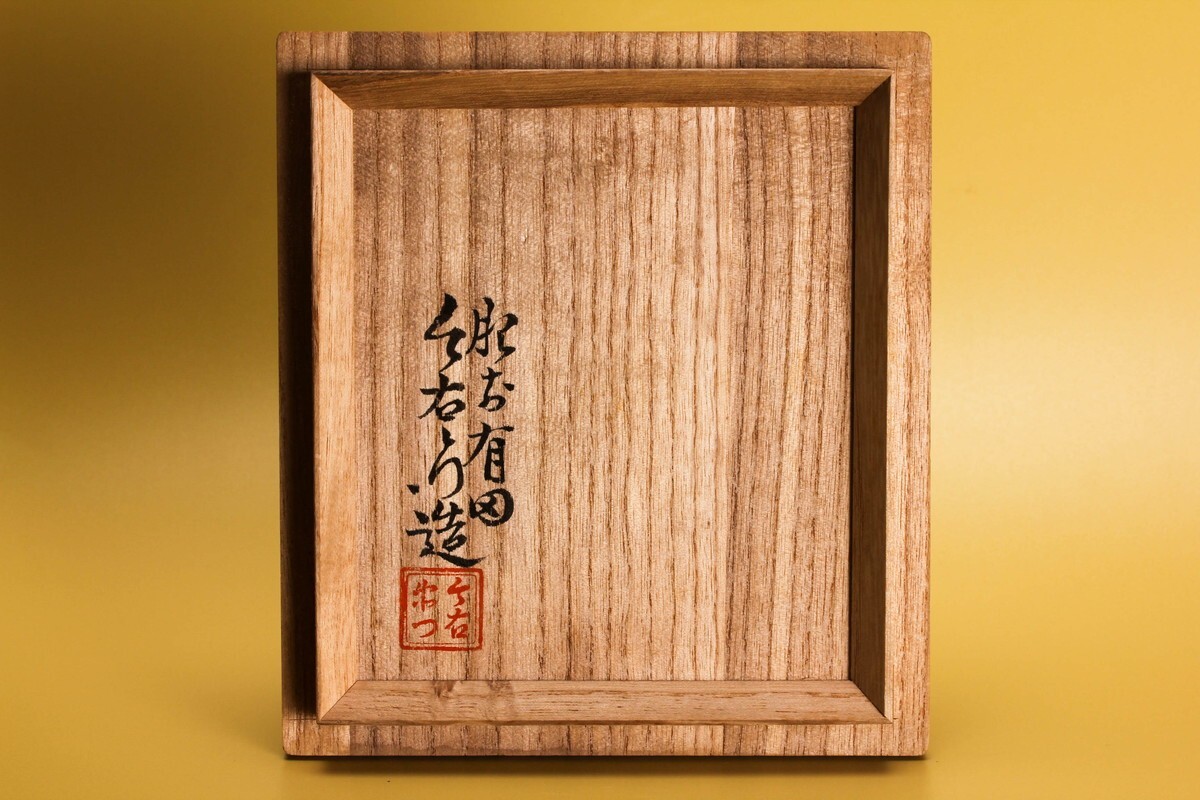 肥前有田
今右衛門造
今右
衛門